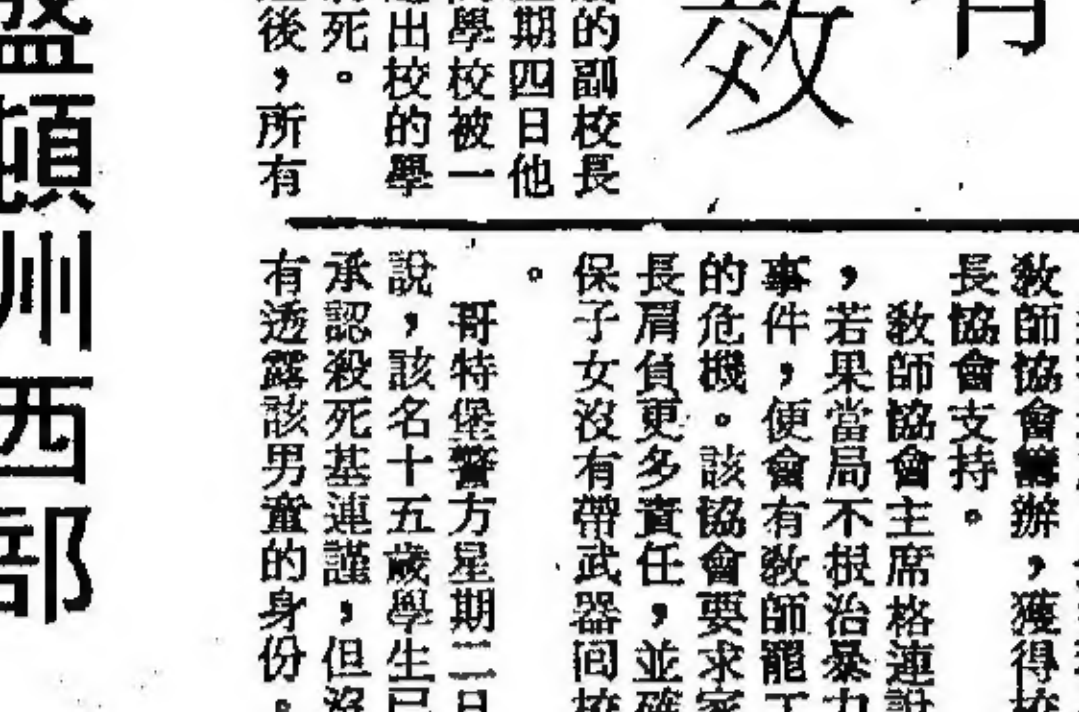 有
效
的副校長
期四日他
學校被一
出校的學
死。
後，所有
教師協會辦，獲得校
長協會支持。
教師協會主席格連說
，若果當局不根治暴力
事件，便會有教師罷工
的危機。該協會要求家
長肩負更多責任，並確
保子女沒有帶武器回校
。
哥特堡警方星期二日
說，該名十五歲學生已
承認殺死基連謹，但沒
有透露該男童的身份。
盛頓州西部